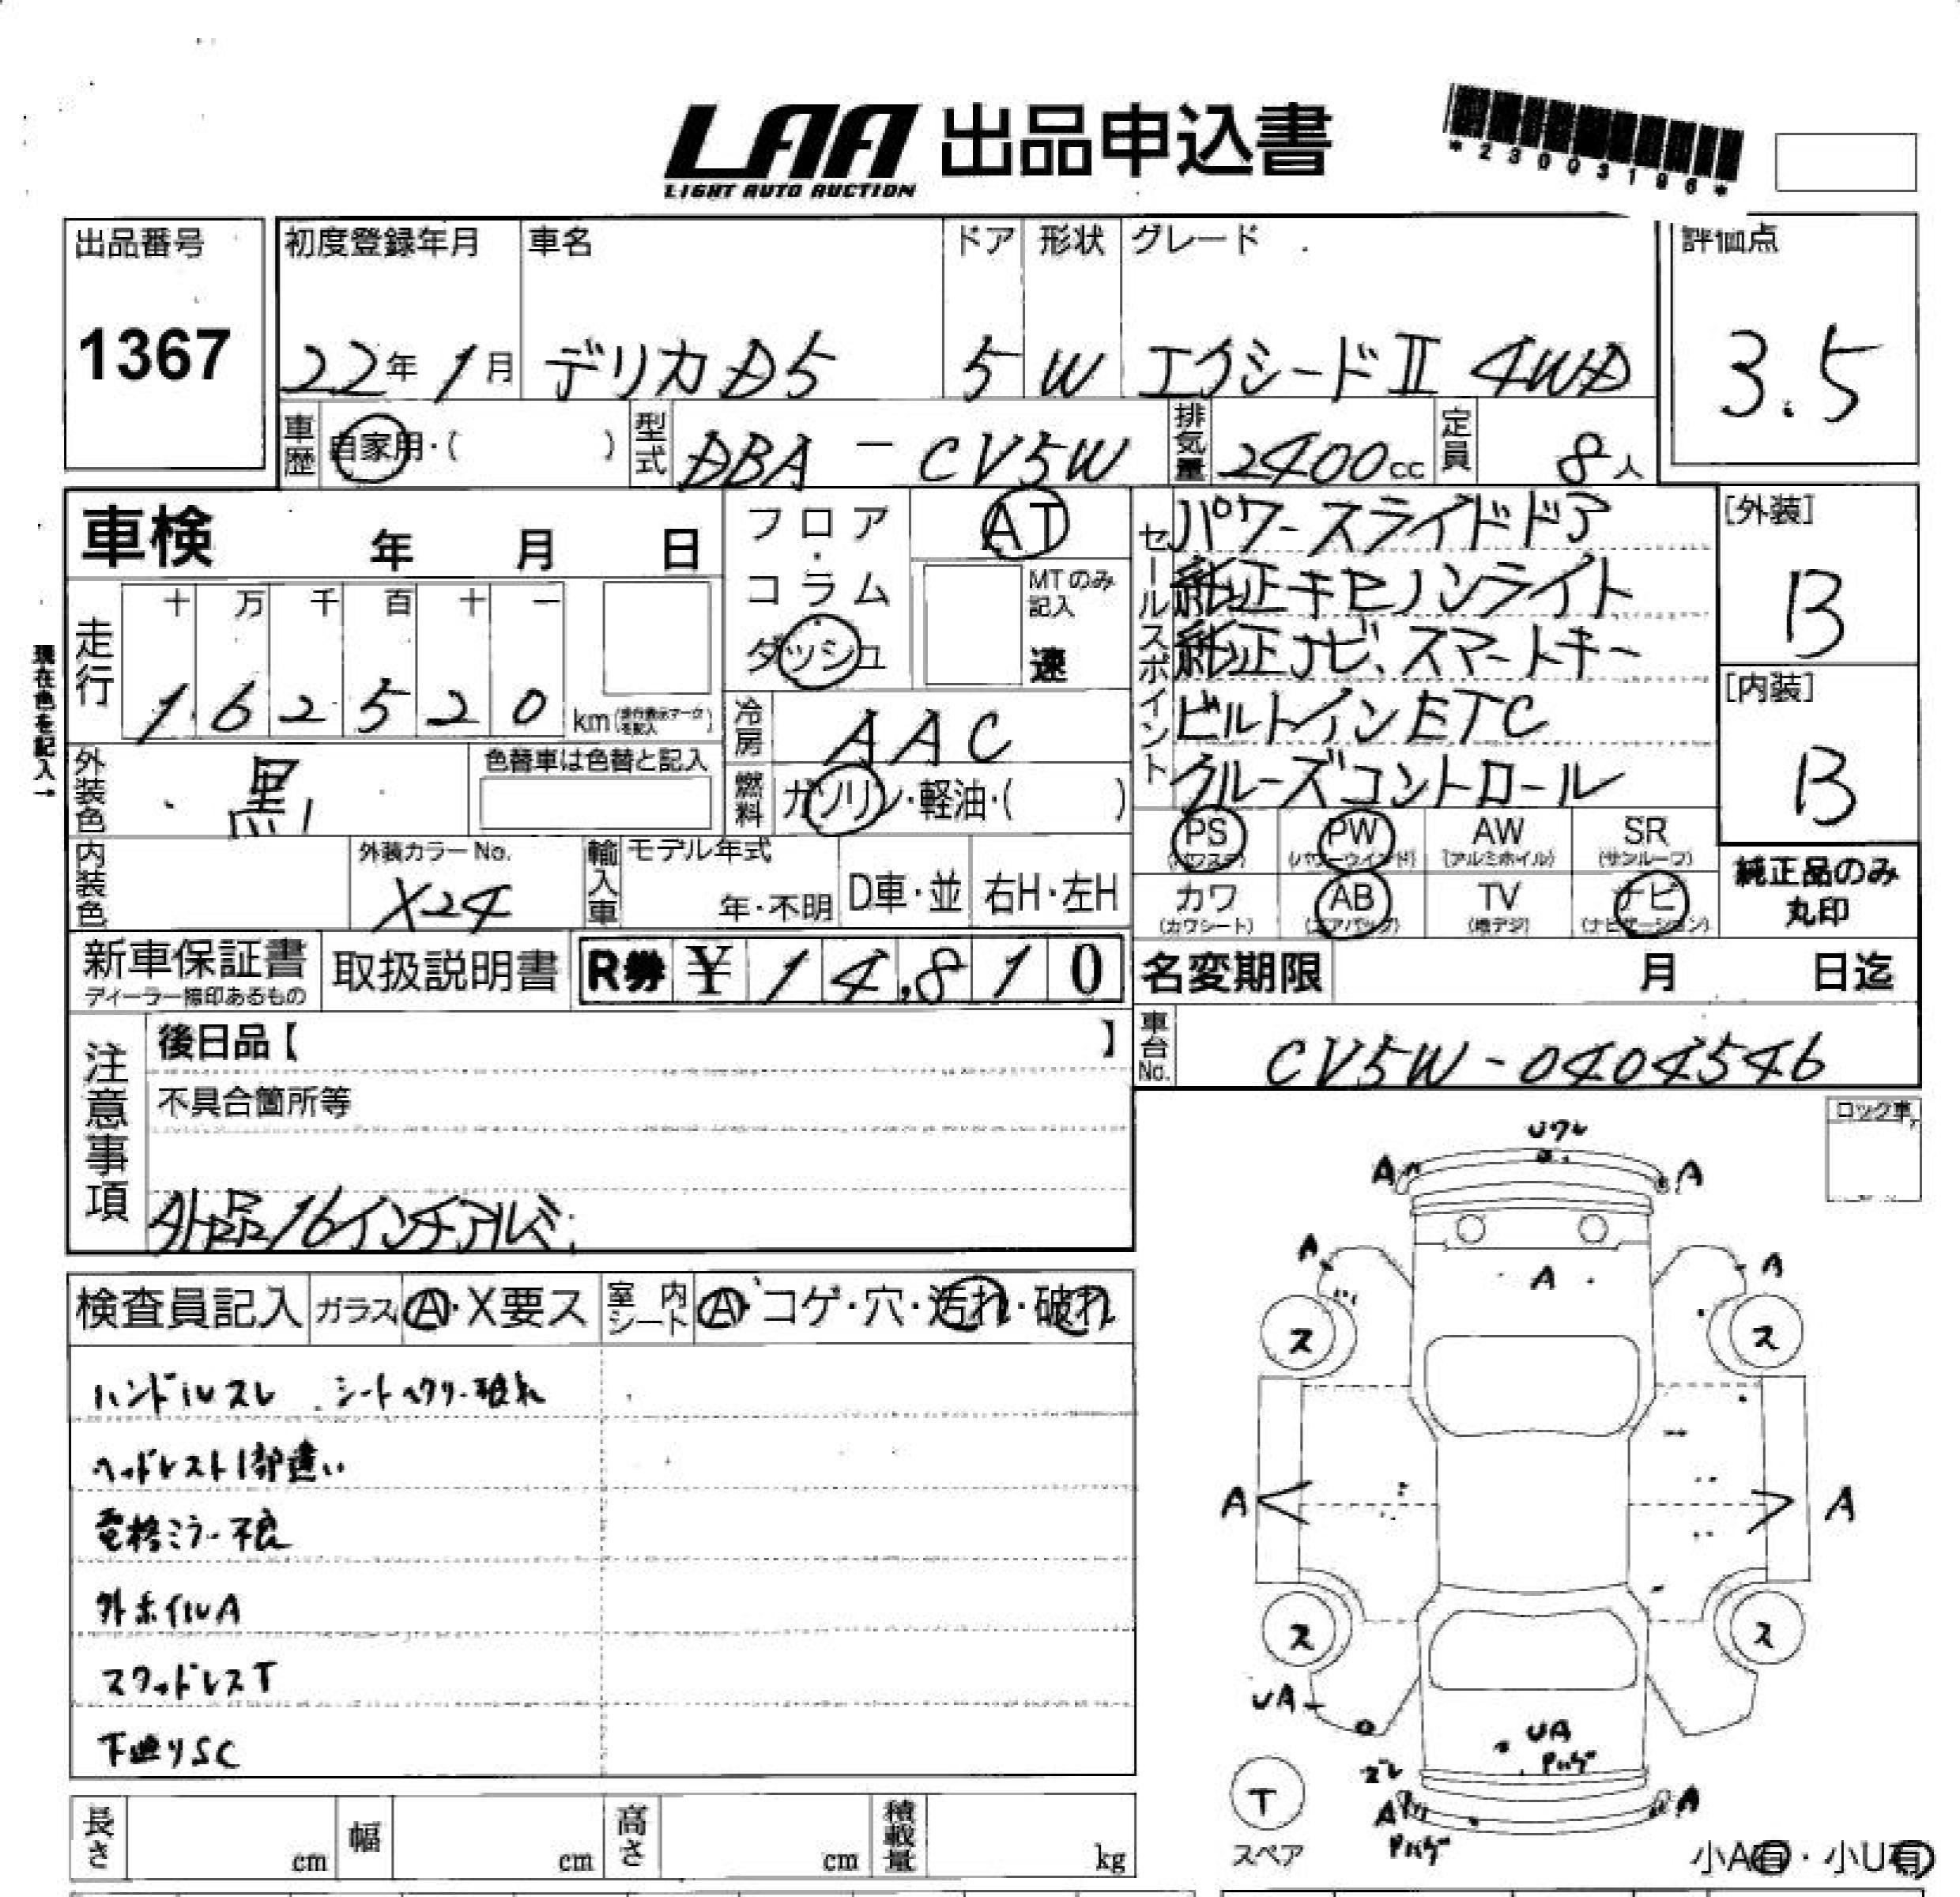 LAA 出品申込書
LIGHT AUTO AUCTION
*23003196*
出品番号 初度登録年月 車名 ドア 形状 グレード 評価点
1367 22年1月 デリカD5 5 W エクシードⅡ 4WD 3.5
車歴 自家用・( ) 型式 DBA-CV5W 排気量 2400cc 定員 8人
車検 年 月 日
フロア・コラム・ダッシュ AT
MTのみ記入 速
セールスポイント
パワースライドドア
純正キセノンライト
純正ナビ、スマートキー
ビルトインETC
クルーズコントロール
[外装]
B
[内装]
B
現在色を記入→
走行 十 万 千 百 十 一
162520 km (走行表示マークを記入)
冷房 AAC
外装色 黒 色替車は色替と記入
燃料 ガソリン・軽油・( )
PS (パワステ) PW (パワーウインド) AW (アルミホイル) SR (サンルーフ)
カワ (カワシート) AB (エアバッグ) TV (地デジ) ナビ (ナビゲーション)
純正品のみ丸印
内装色 外装カラーNo. X24 輸入車 モデル年式 年・不明 D車・並 右H・左H
新車保証書 ディーラー捺印あるもの 取扱説明書 R券 ¥14,810
名変期限 月 日迄
車台No. CV5W-0404546
注意事項
後日品【 】
不具合箇所等
外品16インチアルミ
検査員記入 ガラス A・X要ス 室内シート A・コゲ・穴・汚れ・破れ
ハンドルスレ シートヘタリ・破れ
ヘッドレスト1部違い
電格ミラー不良
外ホイルA
スタッドレスT
下廻りSC
長さ cm 幅 cm 高さ cm 積載量 kg
ロック車
A A
A A
A
ス ス
A A
ス ス
UA
UA
Pハゲ
ズレ
A A
Pハゲ
T
スペア
小A有・小U有